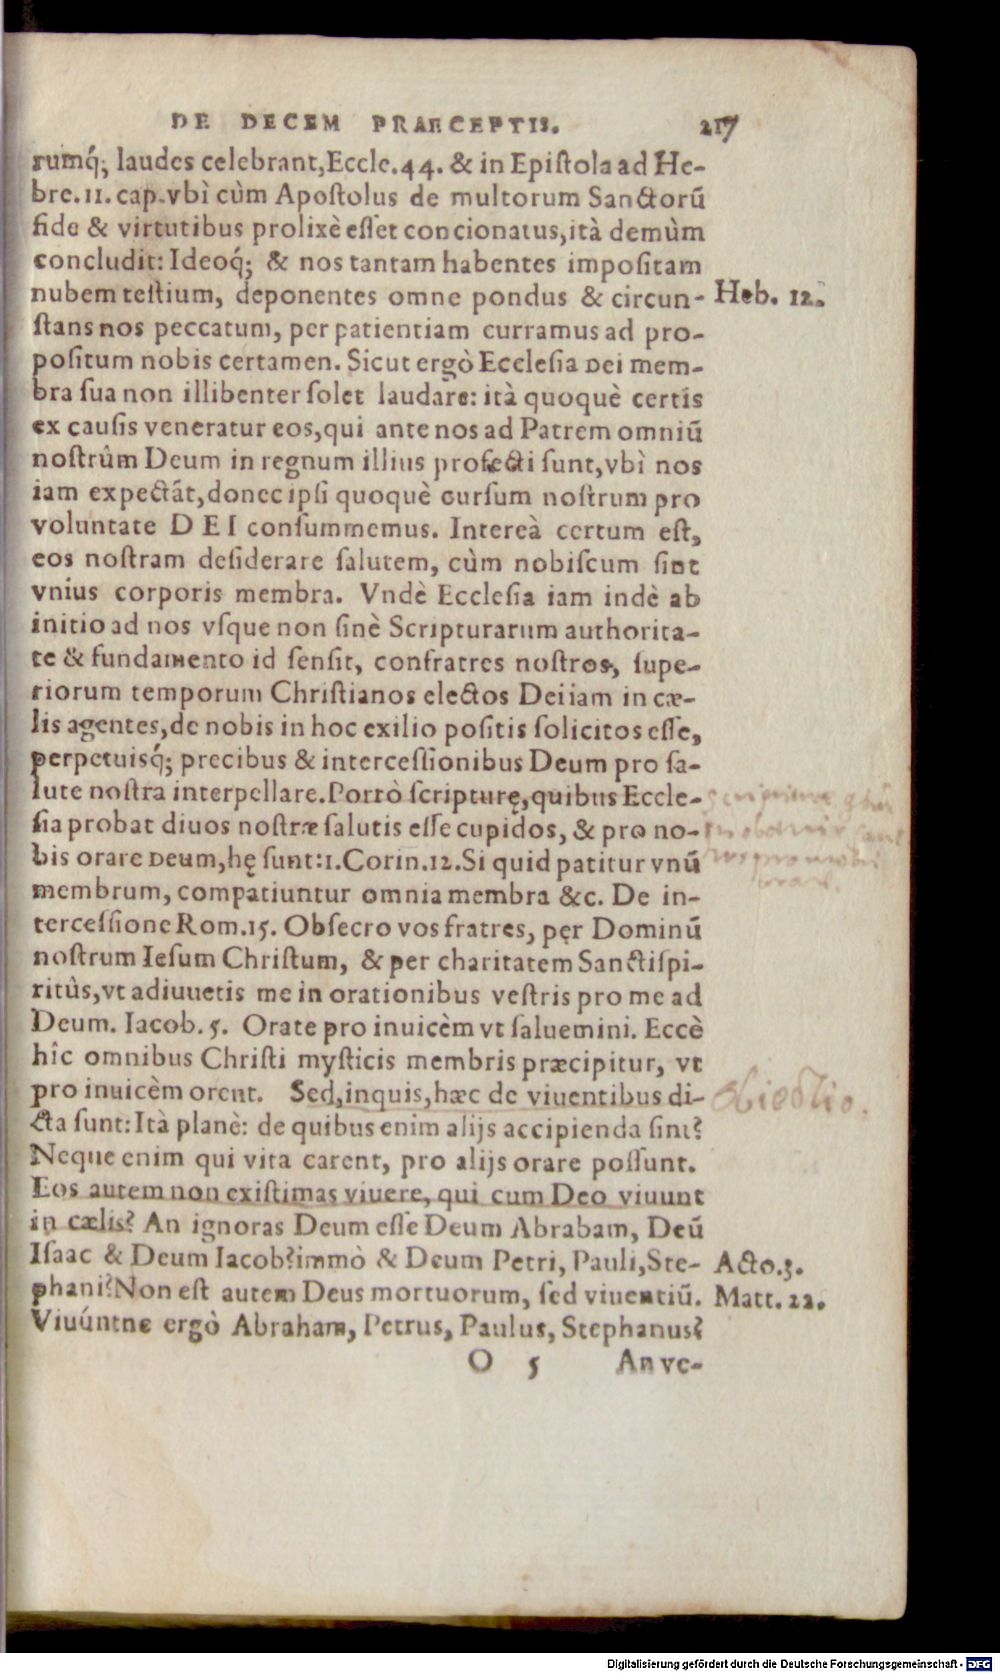 DE DECEM PRAECEPTIS. 217
rumq́; laudes celebrant,Eccle.44. & in Epiſtola ad He-
bre.11. cap.vbì cùm Apoſtolus de multorum Sanctorũ
fide & virtutibus prolixè eſſet concionatus,ità demùm
concludit: Ideoq́; & nos tantam habentes impoſitam
nubem teſtium, deponentes omne pondus & circun- Heb. 12.
ſtans nos peccatum, per patientiam curramus ad pro-
poſitum nobis certamen. Sicut ergò Eccleſia DEI mem-
bra ſua non illibenter ſolet laudare: ità quoquè certis
ex cauſis veneratur eos,qui ante nos ad Patrem omniũ
noſtrûm Deum in regnum illius profecti ſunt,vbì nos
iam expectãt,donec ipſi quoquè curſum noſtrum pro
voluntate DEI conſummemus. Intereà certum eſt,
eos noſtram deſiderare ſalutem, cùm nobiſcum ſint
vnius corporis membra. Vndè Eccleſia iam indè ab
initio ad nos vſque non ſinè Scripturarum authorita-
te & fundamento id ſenſit, confratres noſtros, ſupe-
riorum temporum Chriſtianos electos Dei iam in cæ-
lis agentes,de nobis in hoc exilio poſitis ſolicitos eſſe,
perpetuisq́; precibus & interceſſionibus Deum pro ſa-
lute noſtra interpellare.Porrò ſcripturę,quibus Eccle-
ſia probat diuos noſtræ ſalutis eſſe cupidos, & pro no-
bis orare DEUM,hę ſunt:1.Corin.12.Si quid patitur vnũ
membrum, compatiuntur omnia membra &c. De in-
terceſſione Rom.15. Obſecro vos fratres, per Dominũ
noſtrum Ieſum Chriſtum, & per charitatem Sanctiſpi-
ritûs,vt adiuuetis me in orationibus veſtris pro me ad
Deum. Iacob.5. Orate pro inuicèm vt ſaluemini. Eccè
hîc omnibus Chriſti myſticis membris præcipitur, vt
pro inuicèm orent. Sed,inquis,hæc de viuentibus di- Obiectio.
cta ſunt: Ità planè: de quibus enim alijs accipienda ſint?
Neque enim qui vita carent, pro alijs orare poſſunt.
Eos autem non exiſtimas viuere, qui cum Deo viuunt
in cælis? An ignoras Deum eſſe Deum Abraham, Deũ
Iſaac & Deum Iacob?immò & Deum Petri, Pauli,Ste- Acto.3.
phani?Non eſt autem Deus mortuorum, ſed viuentiũ. Matt. 22.
Viuúntne ergò Abraham, Petrus, Paulus, Stephanus?
O 5 An ve-
Digitalisierung gefördert durch die Deutsche Forschungsgemeinschaft - DFG